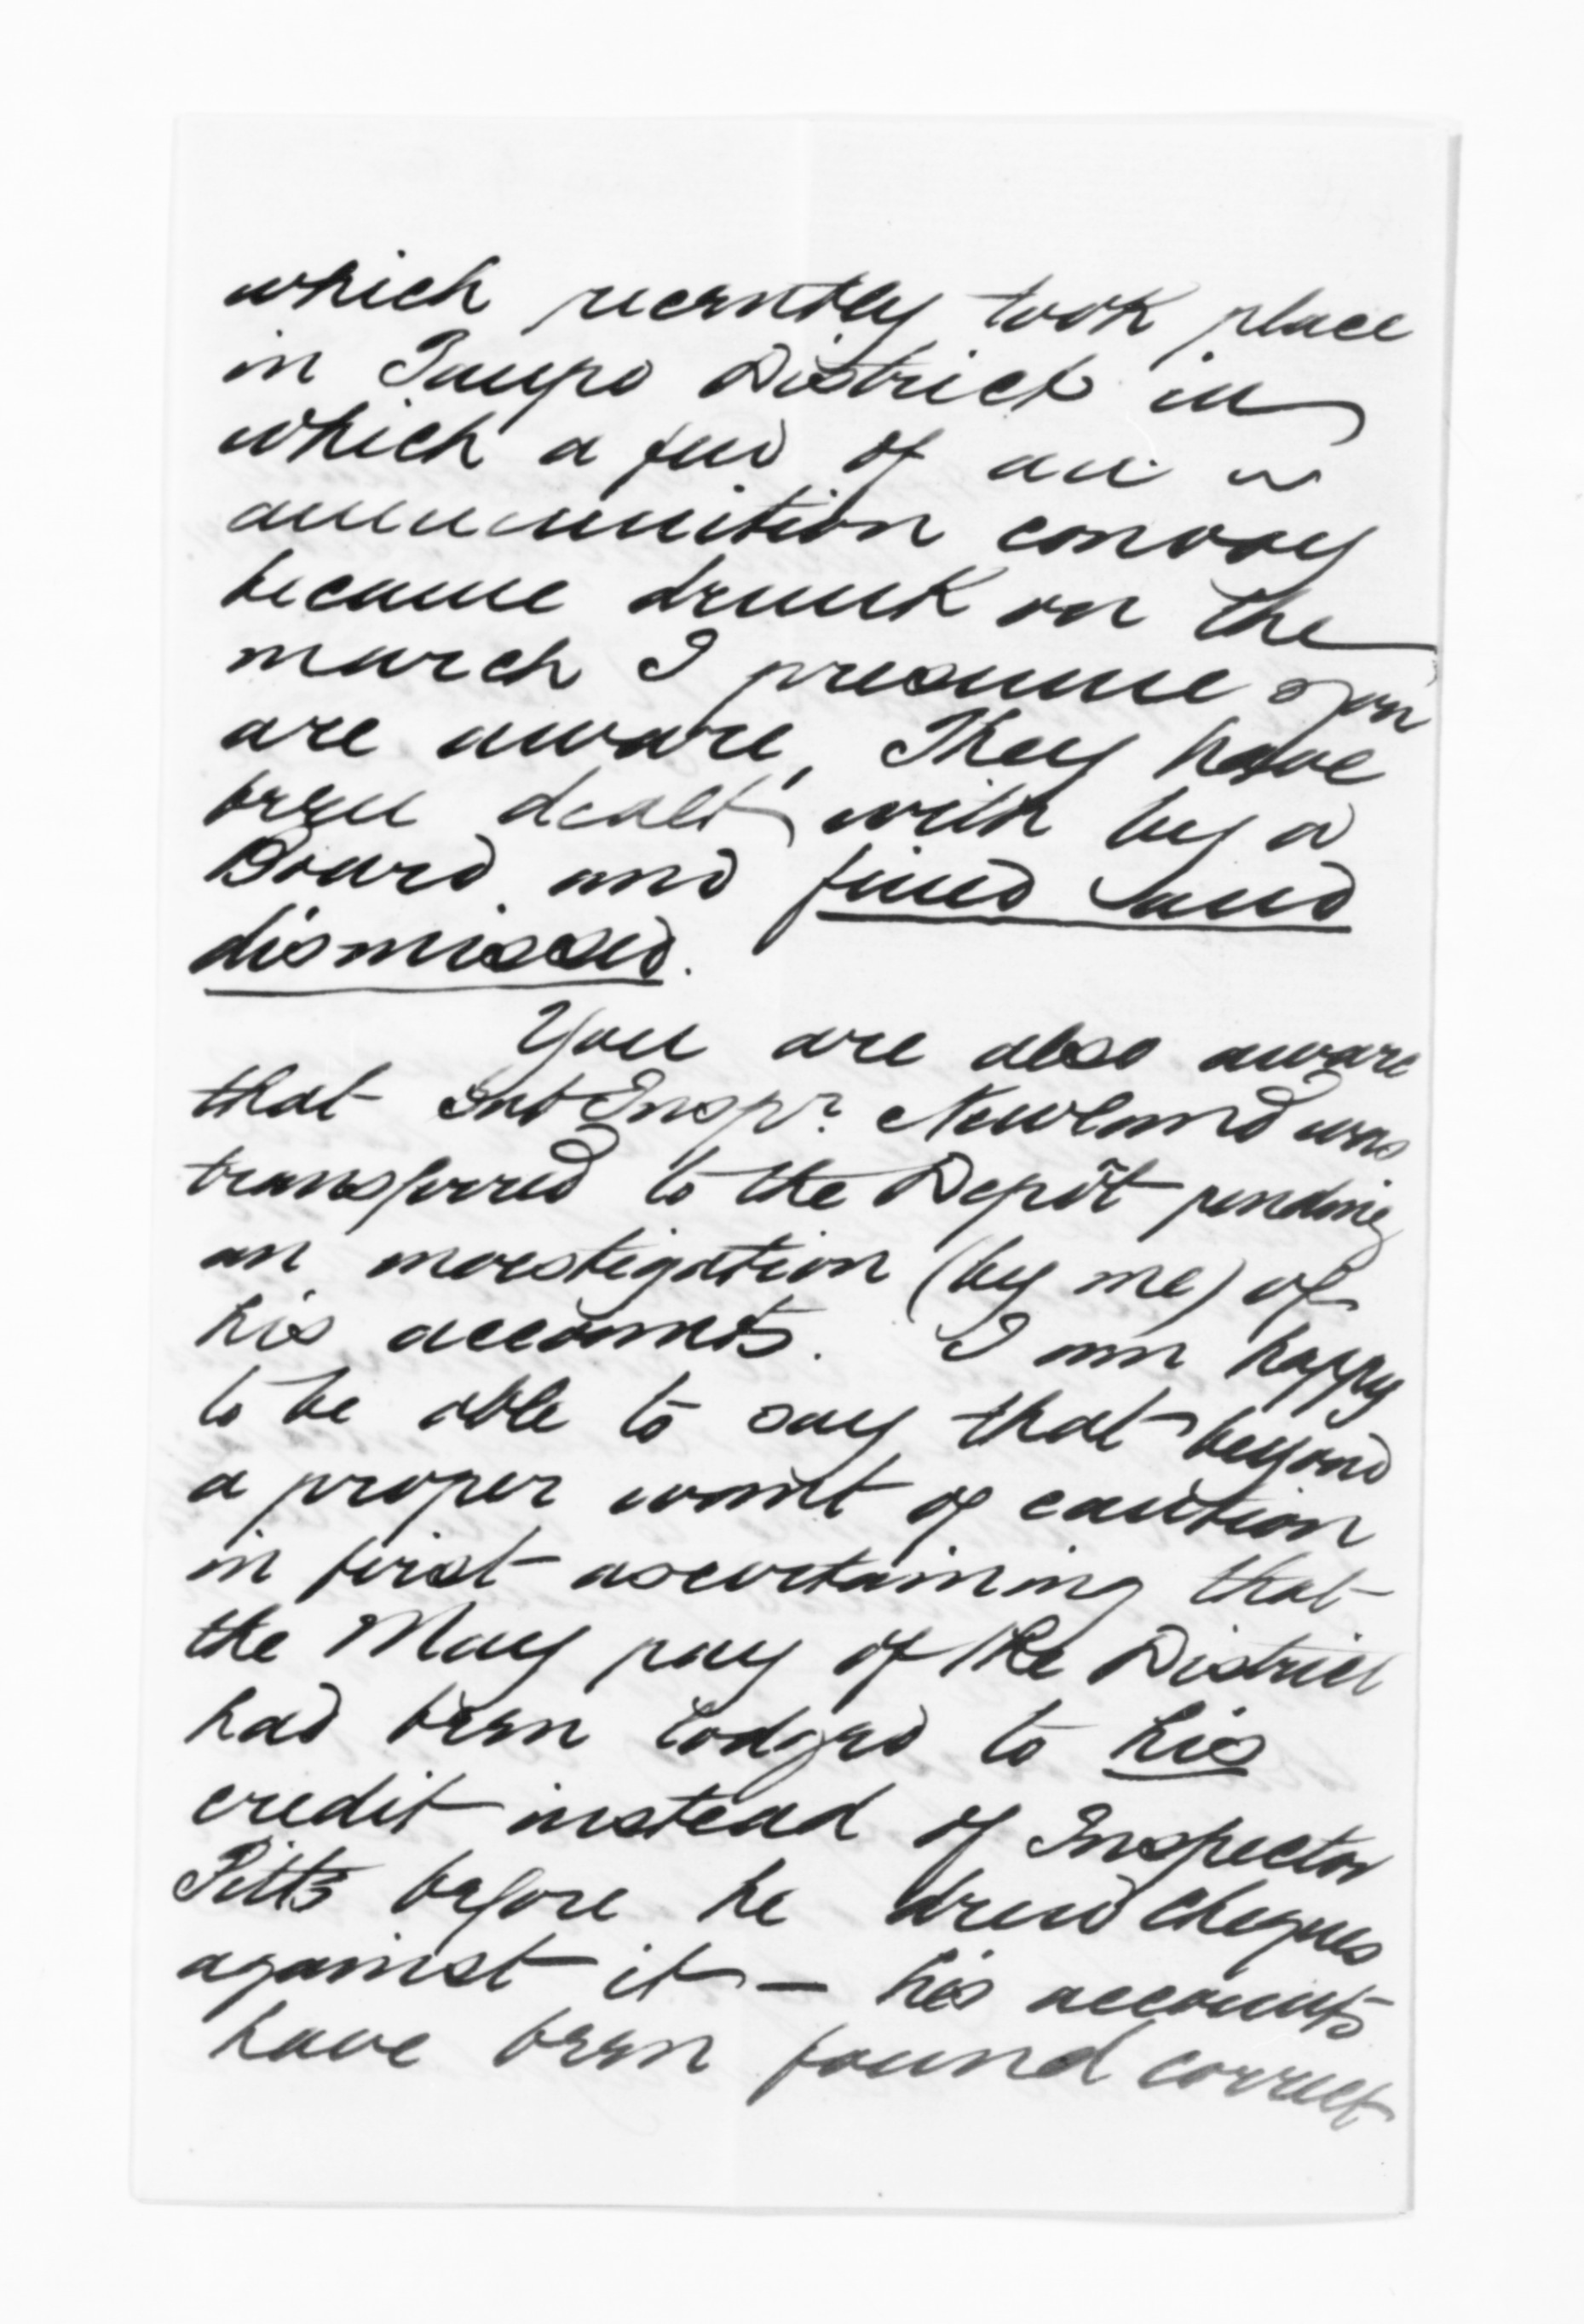 which recently took place
in Taupo District in
which a few of an
ammunition convoy
became drunk on the
march I presume you
are aware, They have
been dealt with by a
Board and fined and
dismissed.
You are also aware
that Sub Inspr. Newland was
transferred to the Depôt pending
an investigation (by me) of
his accounts. I am happy
to be able to say that beyond
a proper want of caution
in first ascertaining that
the May pay of the District
had been lodged to his
credit instead of Inspector
Pitts before he drew cheques
against it - his accounts
have been found correct